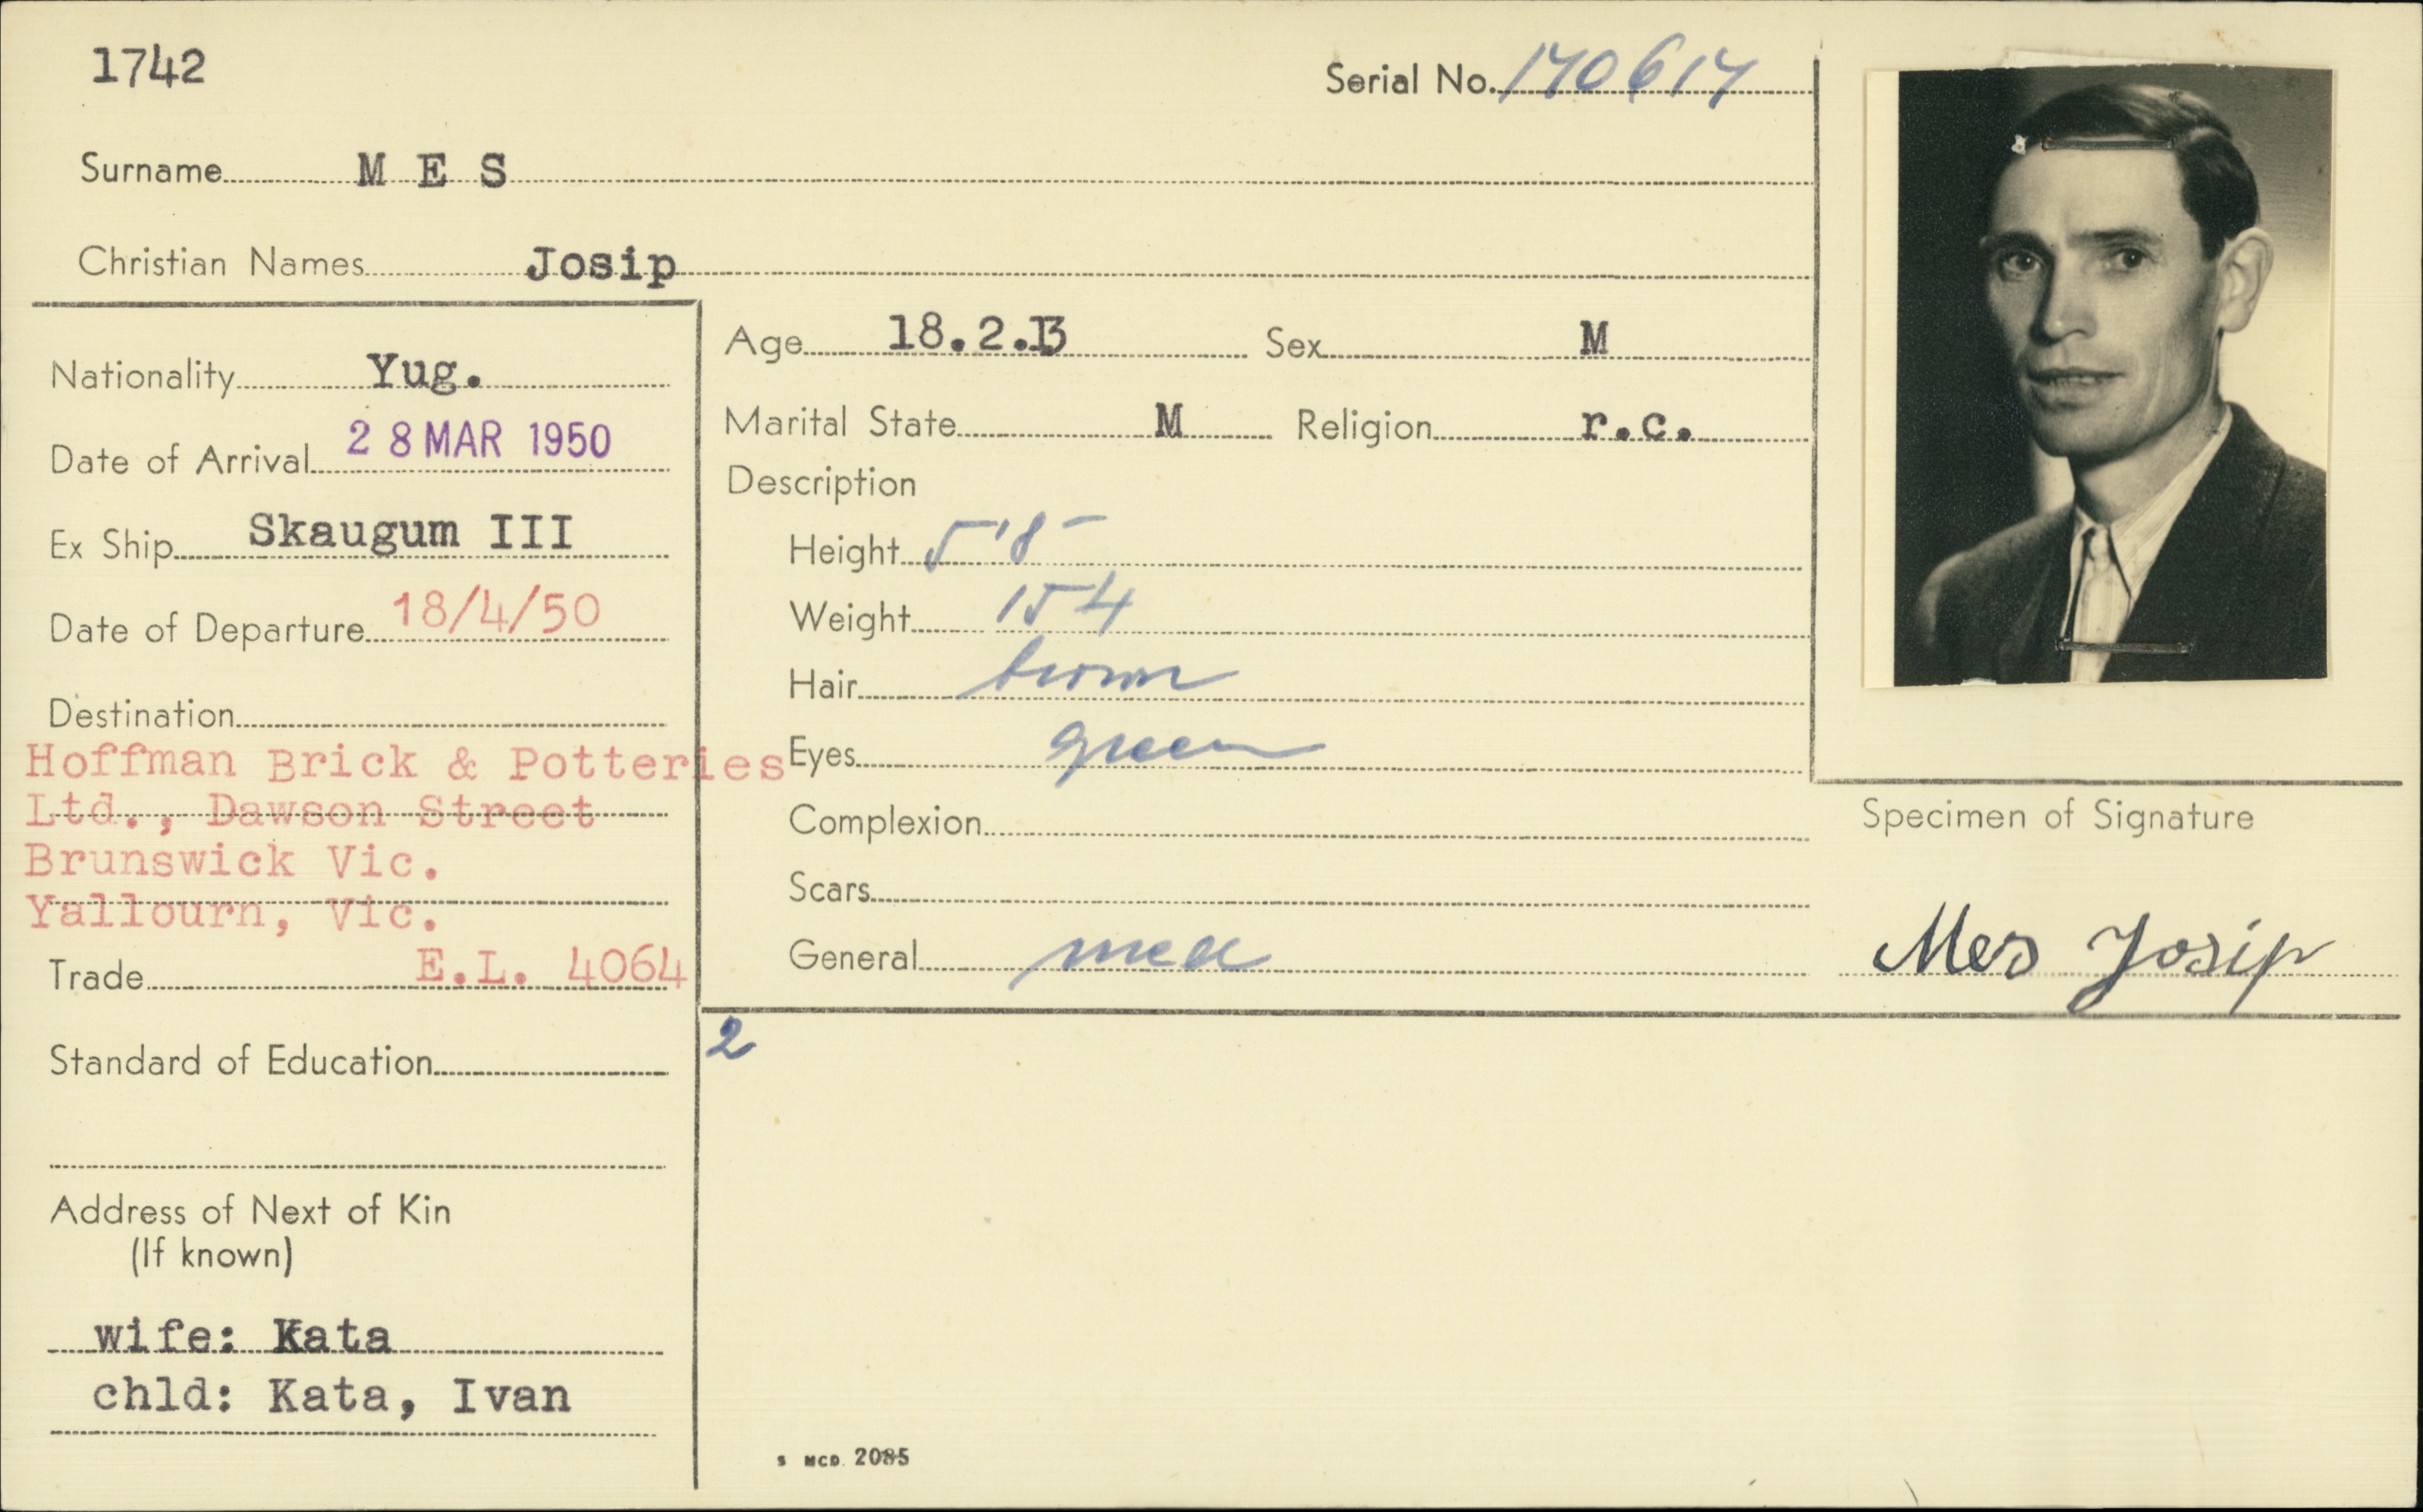 1742
Serial No. 170617
Surname M E S
Christian Names Josip
Nationality Yug.
Date of Arrival 28 MAR 1950
Ex Ship Skaugum III
Date of Departure 18/4/50
Destination
Hoffman Brick & Potteries
Ltd., Dawson Street
Brunswick Vic.
Yallourn, Vic.
E.L. 4064
Trade
Standard of Education
Address of Next of Kin
(If known)
wife: Kata
chld: Kata, Ivan
Age 18.2.13 Sex M
Marital State M Religion r.c.
Description
Height 5'8
Weight 154
Hair brown
Eyes green
Complexion
Scars
General med
2
S MCD. 2085
Specimen of Signature
Mes Josip